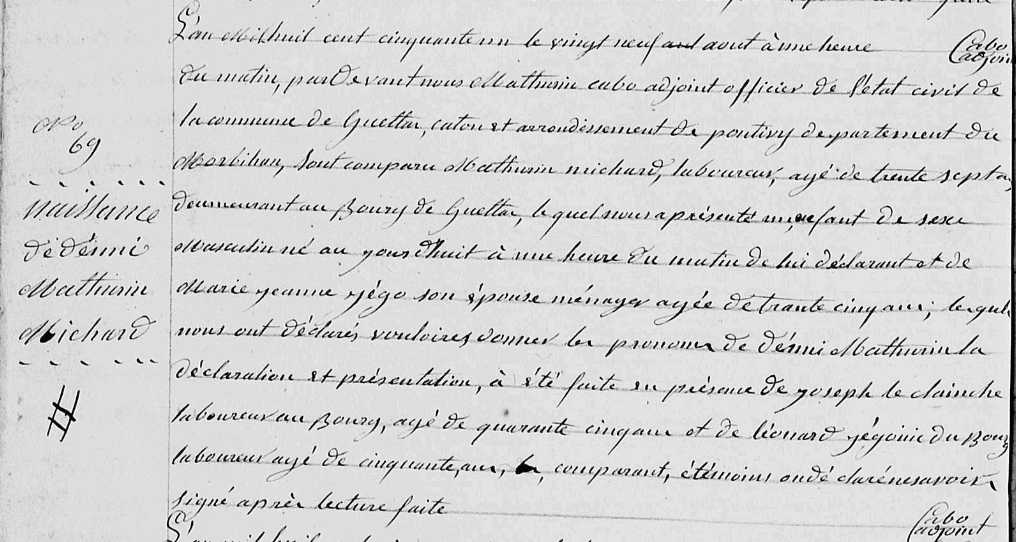 L'an Mil huit cent cinquante un le vingt neuf aout à une heure
Cabo
adjoint
du matin, par Devant nous Mathurin cabo adjoint officier de l'état civil de
la commune de Gueltar, caton et arrondissement de pontivy departement du
Morbihan, Sont comparu Mathurin michard, laboureux, agé de trente sept ans
demeurant au Bourg de Gueltar, le quel nous aprésenté un enfant de sexe
Masculin né au jourdhuit à une heure du matin de lui déclarant et de
Marie jeanne jégo son épouse ménager agée de trante cinq ans; lequels
nous ont déclarés vouloires donner les pronoms de dénni Mathurin la
déclaration et présentation, à été faite en présence de joseph le clainche
laboureux au Bourg, agé de quarante cinq ans et de léonard jégoinic du Bourg
laboureux agé de cinquante, ans, comparant, étémoins ondé claré nesavoir
signé après lecture faite
Cabo
adjoint
No
69
naissance
de dénni
Mathurin
Michard
L'an mil huit